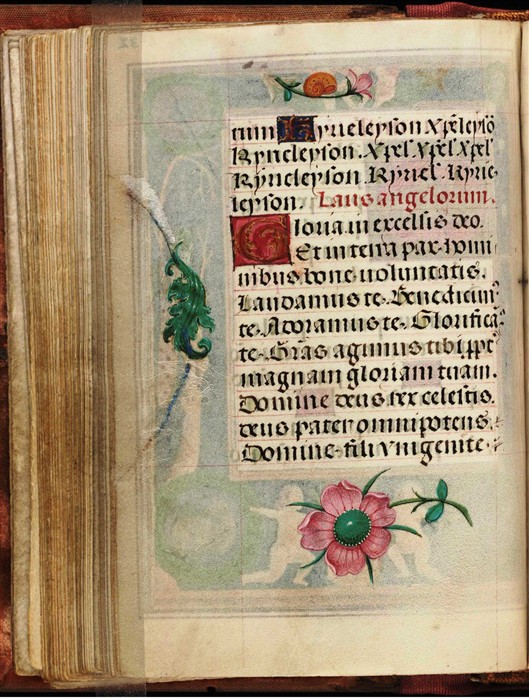 tuum Kyrieleyson Xp̄eleyso
Kyrieleyson. Xpel. Xpel. Xpel
Kyrieleyson. Kyriel. Kyrie-
leyson. Laus angelorum.
Gloria in excelsis deo.
Et in terra pax homi
nibus bone voluntatis.
Laudamus te. Benedicim⁹
te. Adoramus te. Glorificam⁹
te. Gr̄as agimus tibi ꝓpt̄
magnam gloriam tuam.
Domine deus rex celestis.
deus pater omnipotens.
Domine fili vnigenite.